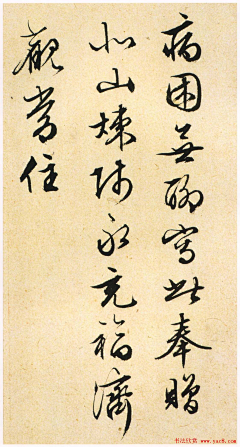 病困無聊寫此奉贈
北山煉師永充福濟
觀常住
书法欣赏 www.yac8.com